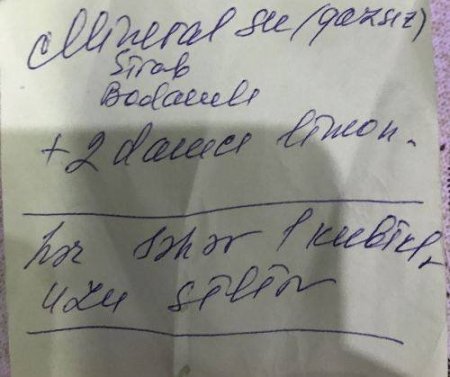 Mineral su (qazsız)
Sirab
Badamlı
+ 2 damcı limon.
hər səhər 1 kubikl,
üzü silir